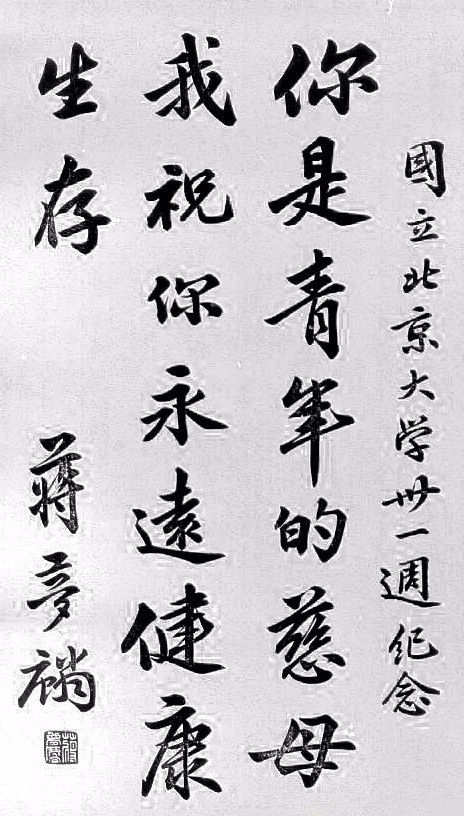 國立北京大学卅一週纪念
你是青年的慈母
我祝你永遠健康
生存
蔣夢麟